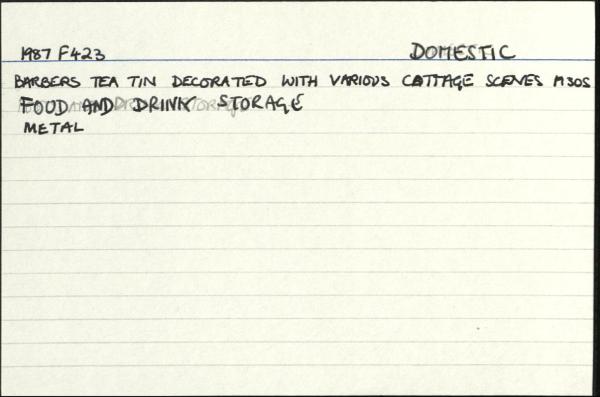 1987 F423 DOMESTIC
BARBERS TEA TIN DECORATED WITH VARIOUS COTTAGE SCENES 1930S
FOOD AND DRINK STORAGE
METAL